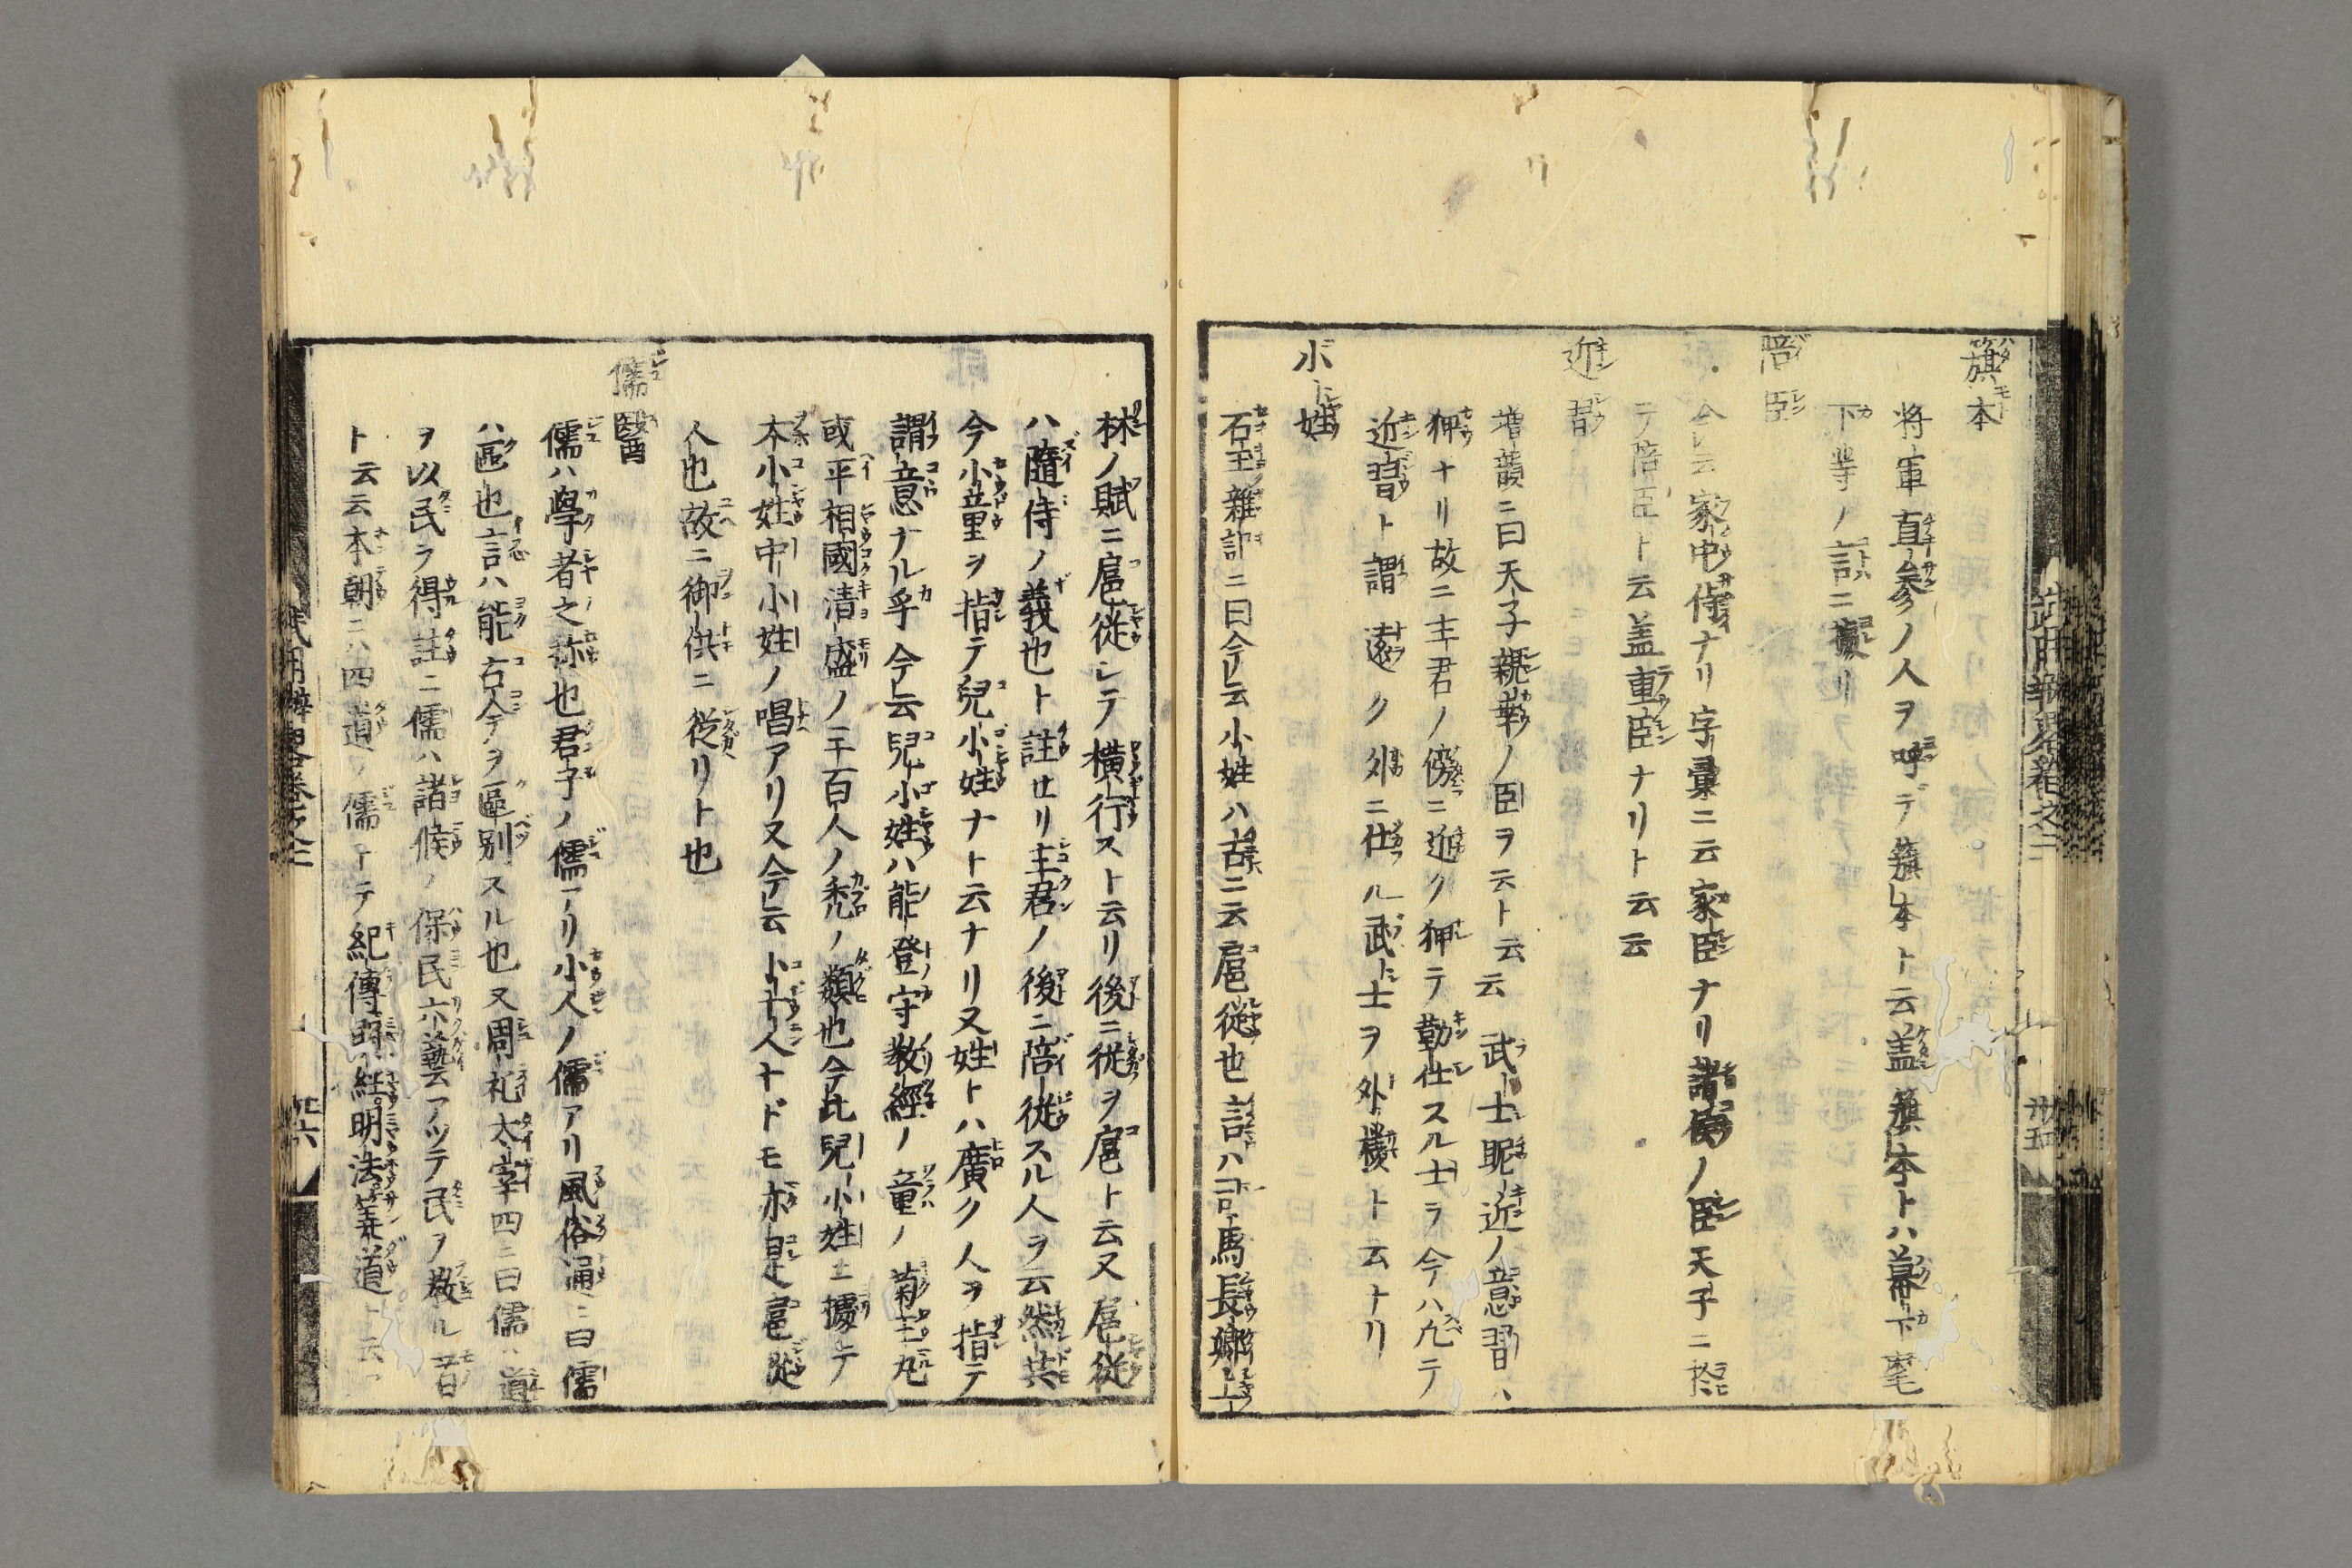 籏本
将軍直参ノ人ヲ呼デ籏本ト云盖籏本トハ幕下麾
下等ノ言ニ據リ
陪臣
今云家中侍ナリ字彙ニ云家臣ナリ諸侯ノ臣天子ニ
テ陪臣ト云盖重臣ナリト云云
近習
増韻ニ曰天子親幸ノ臣ヲ云ト云云 武士昵近ノ意習ハ
狎ナリ故ニ主君ノ傍ニ近ク狎テ勤仕スル士ラ今ハ凢テ
近習ト謂遠ク外ニ仕ル武士ヲ外様ト云ナリ
小姓
石主雜記ニ曰今云小姓ハ古ニ云扈從也言ハ司馬長卿上
林ノ賦ニ扈從シテ横行スト云リ後ニ従ヲ扈ト云又扈従
ハ隨侍ノ義也ト註セリ主君ノ後ニ陪従スル人ラ云然共
今小童ヲ指テ兒小姓ナト云ナリ又姓トハ廣ク人ヲ指テ
謂意ナル乎今云兒小姓ハ能登守教經ノ童ノ菊王丸
或平相國清盛ノ三百人ノ禿ノ類也今此兒小姓ニ據テ
夲小姓中小姓ノ唱アリ又今云小十人ナドモ亦是扈從
人也故ニ御供ニ従リト也
儒醫
儒ハ學者之称也君子ノ儒アリ小人ノ儒アリ風俗通ニ曰儒
ハ區也言ハ能古今ヲ區別スル也又周礼太宰四ニ曰儒ハ道
ヲ以民ラ得註ニ儒ハ諸候ノ保民六藝アツテ民ヲ教ル者
ト云云本朝ニハ四道ノ儒トテ紀傳明經明法筭道ト云
武用辨畧卷之二
卅五
武用辨畧卷之二
卅六